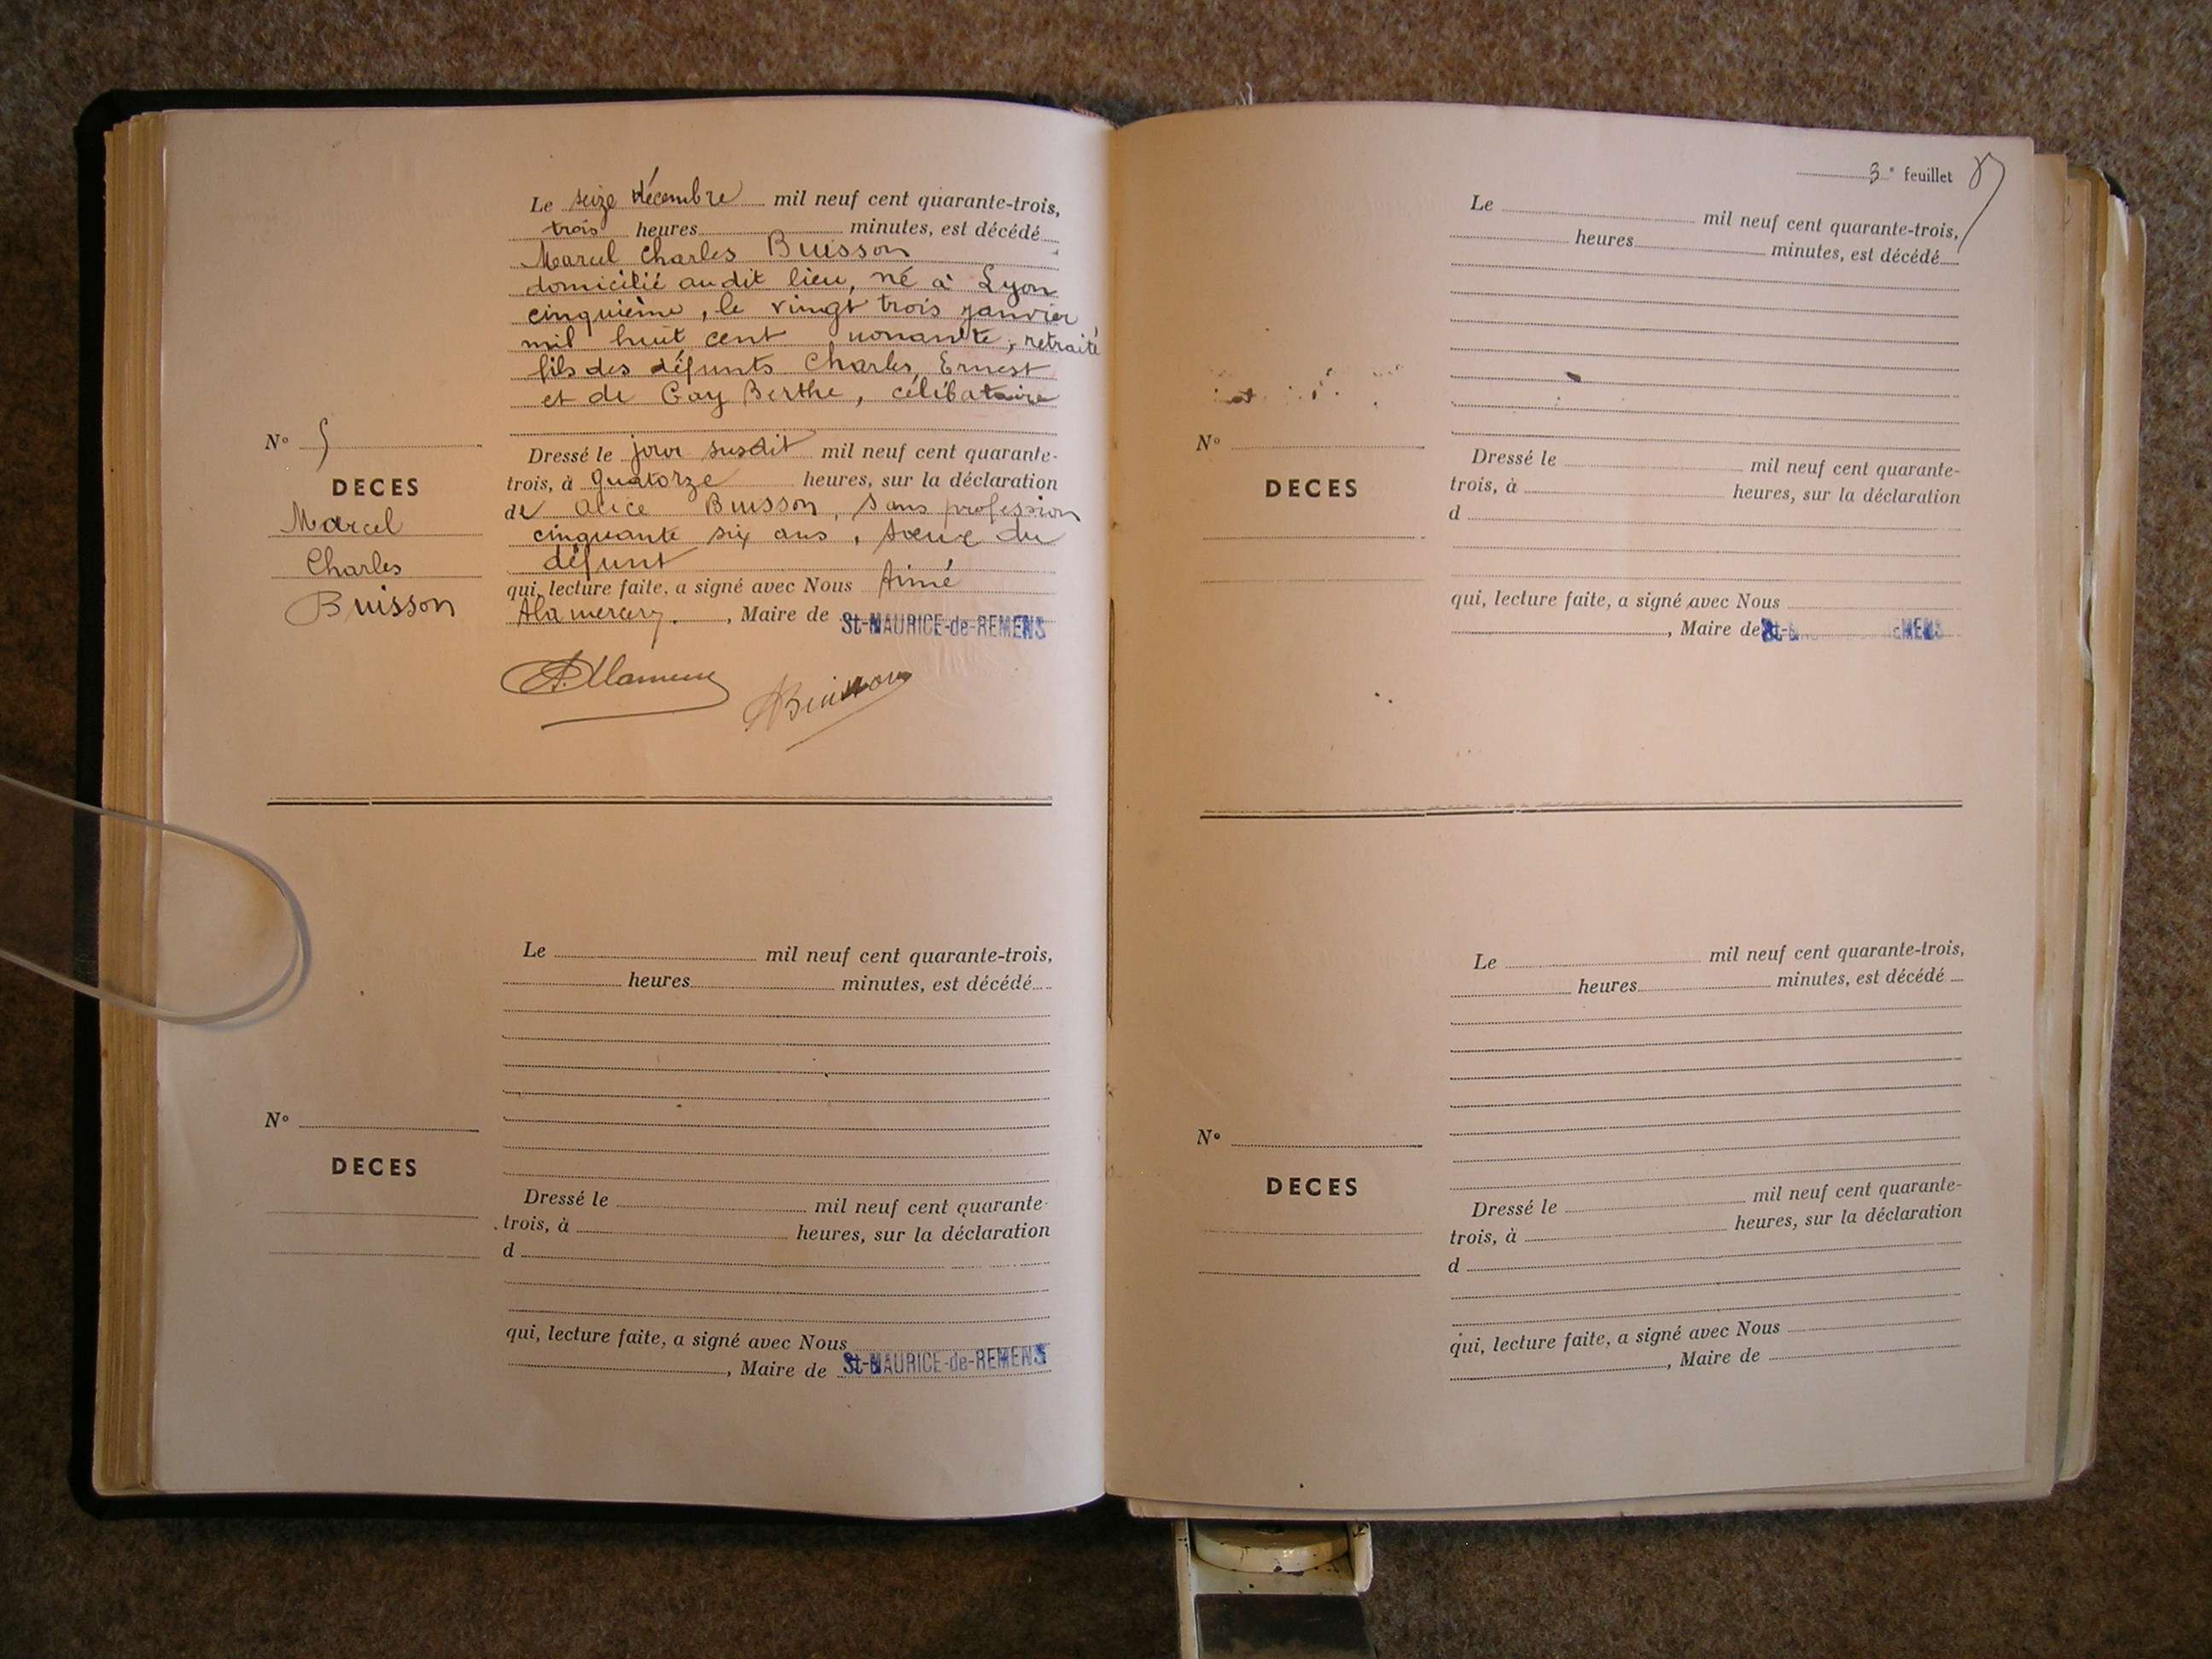 Le seize décembre mil neuf cent quarante-trois,
trois heures minutes, est décédé
Marcel Charles Buisson
domicilié au dit lieu, né à Lyon
cinquième, le vingt trois janvier
mil huit cent nonante, retraité
fils des défunts Charles, Ernest
et de Gay Berthe, célibataire
N° 5
DECES
Marcel
Charles
Buisson
Dressé le jour susdit mil neuf cent quarante-
trois, à Quatorze heures, sur la déclaration
de Alice Buisson, sans profession
cinquante six ans, soeur du
défunt
qui, lecture faite, a signé avec Nous Aimé
Alamercery, Maire de St-MAURICE-de-REMENS
ABuisson
Le mil neuf cent quarante-trois,
heures minutes, est décédé
N°
DECES
Dressé le mil neuf cent quarante-
trois, à heures, sur la déclaration
d
qui, lecture faite, a signé avec Nous
, Maire de St-MAURICE-de-REMENS
3e feuillet
Le mil neuf cent quarante-trois,
heures minutes, est décédé
N°
DECES
Dressé le mil neuf cent quarante-
trois, à heures, sur la déclaration
d
qui, lecture faite, a signé avec Nous
, Maire de St- EMENS
Le mil neuf cent quarante-trois,
heures minutes, est décédé
N°
DECES
Dressé le mil neuf cent quarante-
trois, à heures, sur la déclaration
d
qui, lecture faite, a signé avec Nous
, Maire de